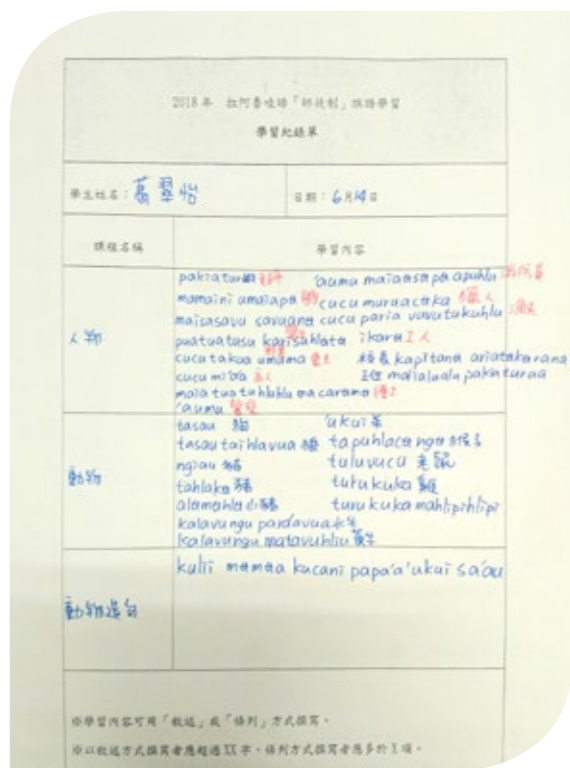 2018年 拉阿魯哇語「師徒制」族語學習
學習紀錄單
學生姓名：葛翠怡
日期：6月14日
課程名稱
學習內容
人物
pakiaturua 老師 'aumu maiaasapa apuhlu
mamaini umaiapa cucu muruacaka 獵人
maisasavu savuana cucu paria vuvutukuhlu 漁夫
puatuatusu karisuhlata ikaru 工人
cucu takua umuma 農夫 校長 kapitana ariatakarana
cucu mi'aa 主任 malialualu pakiaturua
maia tuatuhluhlu macarama 護士
'aumu 醫生
動物
tasau 狗 'ukui 羊
tasau taihlavua tapuhlacanga 猴子
ngiau 貓 tuluvucu 老鼠
tahlaku 豬 turukuka 雞
alumahlu 山豬 turukuka mahlipihlipi
kalavungu pardavua 水牛
kalavungu matavuhliu 黃牛
動物造句
kulii mamaa kucani papa'a 'ukui sa'au
※學習內容可用「敘述」或「條列」方式撰寫。
※以敘述方式撰寫者應超過XX字，條列方式撰寫者應多於X項。